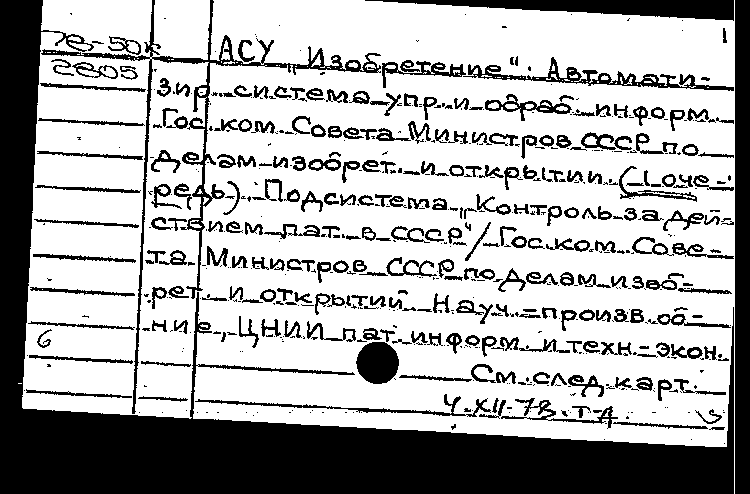 1
78-50к
2805
АСУ „Изобретение“. Автомати-
зир. система упр. и обраб. информ.
Гос. ком. Совета Министров СССР по
делам изобрет. и открытий. (I оче-
редь). Подсистема „Контроль за дей-
ствием пат. в СССР“/ Гос. ком. Сове-
та Министров СССР по делам изоб-
рет. и открытий Науч.-произв. об-
ние, ЦНИИ пат. информ. и техн.-экон.
6
См. след. карт.
4.XII-78.